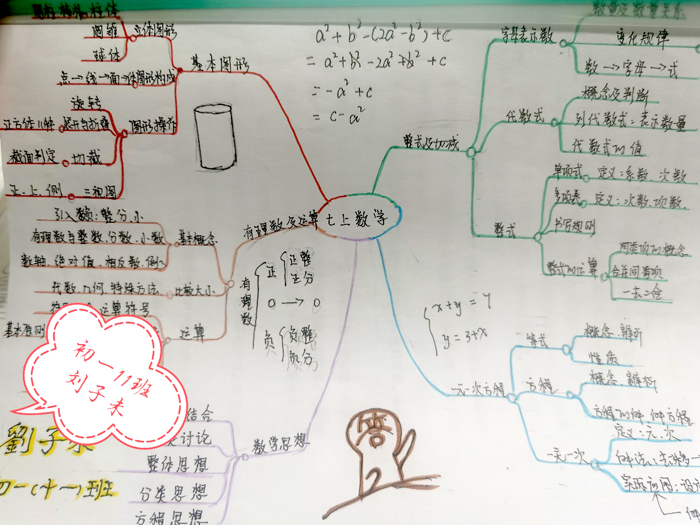 立体图形
圆锥
球体
点→线→面→体图形构成
基本图形
旋转
展开与折叠
图形操作
截面判定
切截
正、上、侧
三视图
a²+b²-(2a²-b²)+c
=a²+b²-2a²+b²+c
=-a²+c
=c-a²
字母表示数
变化规律
数→字母→式
概念及判断
代数式
列代数式:表示数量
代数式的值
整式及加减
单项式
定义:系数、次数
多项式
定义:次数、项数
书写规则
整式
整式的运算
同类项的概念
合并同类项
一去二合
七上数学
有理数及运算
基本概念
有理数与整数、分数、小数
数轴、绝对值、相反数、倒
代数、几何、特殊方法
比较大小
运算符号
运算
有理数
正
正整
正分
0→0
负
负整
负分
x+y=4
y=3+x
一元一次方程
等式
概念 辨析
性质
方程
概念 辨析
方程的解 解方程
一元一次
定义:元、次
数学思想
结合
讨论
整体思想
分类思想
方程思想
答
初一11班
刘子未
劉子未
初一(十一)班